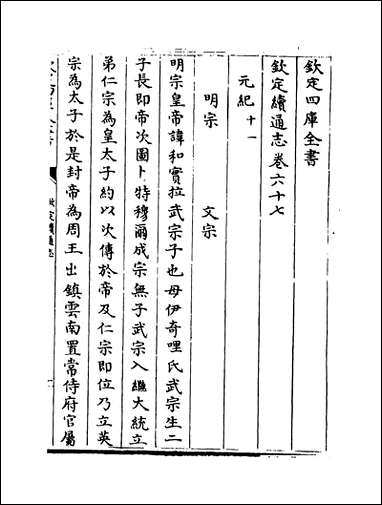 欽定四庫全書
欽定續通志卷六十七
元紀十一
明宗 文宗
明宗皇帝諱和實拉武宗子也母伊奇哩氏武宗生二
子長即帝次圖卜特穆爾成宗無子武宗入繼大統立
弟仁宗為皇太子約以次傳於帝及仁宗即位乃立英
宗為太子於是封帝為周王出鎮雲南置常侍府官屬
欽定續通志